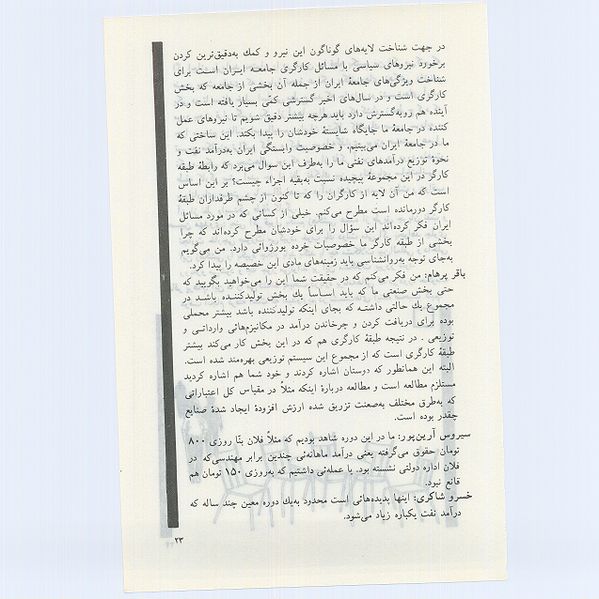 در جهت شناخت لایه‌های گوناگون این نیرو و کمك به‌دقیق‌ترین کردن
برخورد نیروهای سیاسی با مسائل کارگری جامعـه ایـران اسـت برای
شناخت ویژگی‌های جامعهٔ ایران از جمله آن بخشی از جامعه که بخش
کارگری است و در سال‌های اخیر گسترشی کمّی بسیار یافته است و در
آینده هم روبه‌گسترش دارد باید هرچه بیشتر دقیق شویم تا نیروهای عمل
کننده در جامعهٔ ما جایگاه شایستهٔ خودشان را پیدا بکند. این ساختی که
ما در جامعهٔ ایران می‌بینیم. و خصوصیت وابستگی ایران به‌درآمد نفت و
نحوهٔ توزیع درآمدهای نفتی ما را به‌طرف این سوال می‌برد که رابطهٔ طبقه
کارگر در این مجموعهٔ پیچیده نسبت به‌بقیه اجزاء چیست؟ بر این اساس
است که من آن لایه از کارگران را که تا کنون از چشم طرفداران طبقهٔ
کارگر دورمانده است مطرح می‌کنم. خیلی از کسانی که در مورد مسائل
ایران فکر کرده‌اند این سؤال را برای خودشان مطرح کرده‌اند که چرا
بخشی از طبقه کارگر ما خصوصیات خرده بورژوائی دارد. من می‌گویم
به‌جای توجه به‌روانشناسی باید زمینه‌های مادی این خصیصه را پیدا کرد.
باقر پرهام: من فکر می‌کنم که در حقیقت شما این را می‌خواهید بگویید که
حتی بخش صنعتی ما که باید اسـاسـاً یك بخش تولیدکننـده باشـد در
مجموع یك حالتی داشتـه که بجای اینکه تولیدکننده باشد بیشتر محملی
بوده برای دریافت کردن و چرخاندن درآمد در مکانیزم‌هائی وارداتی و
توزیعی . در نتیجه طبقهٔ کارگری هم که در این بخش کار می‌کند بیشتر
طبقهٔ کارگری است که از مجموع این سیستم توزیعی بهره‌مند شده است.
البته این همانطور که دوستان اشاره کردند و خود شما هم اشاره کردید
مستلزم مطالعه است و مطالعه دربارهٔ اینکه مثلاً در مقیاس کل اعتباراتی
که به‌طرق مختلف به‌صنعت تزریق شده ارزش افزودهٔ ایجاد شدهٔ صنایع
چقدر بوده است.
سیروس آرین‌پور: ما در این دوره شاهد بودیم که مثلاً فلان بنّا روزی ۸۰۰
تومان حقوق می‌گرفته یعنی درآمد ماهانه‌ئی چندین برابر مهندسی‌که در
فلان اداره دولتی نشسته بود. یا عمله‌ئی داشتیم که به‌روزی ۱۵۰ تومان هم
قانع نبود.
خسرو شاکری: اینها پدیده‌هائی است محدود به‌یك دوره معین چند ساله که
درآمد نفت یکباره زیاد می‌شود.
۲۳